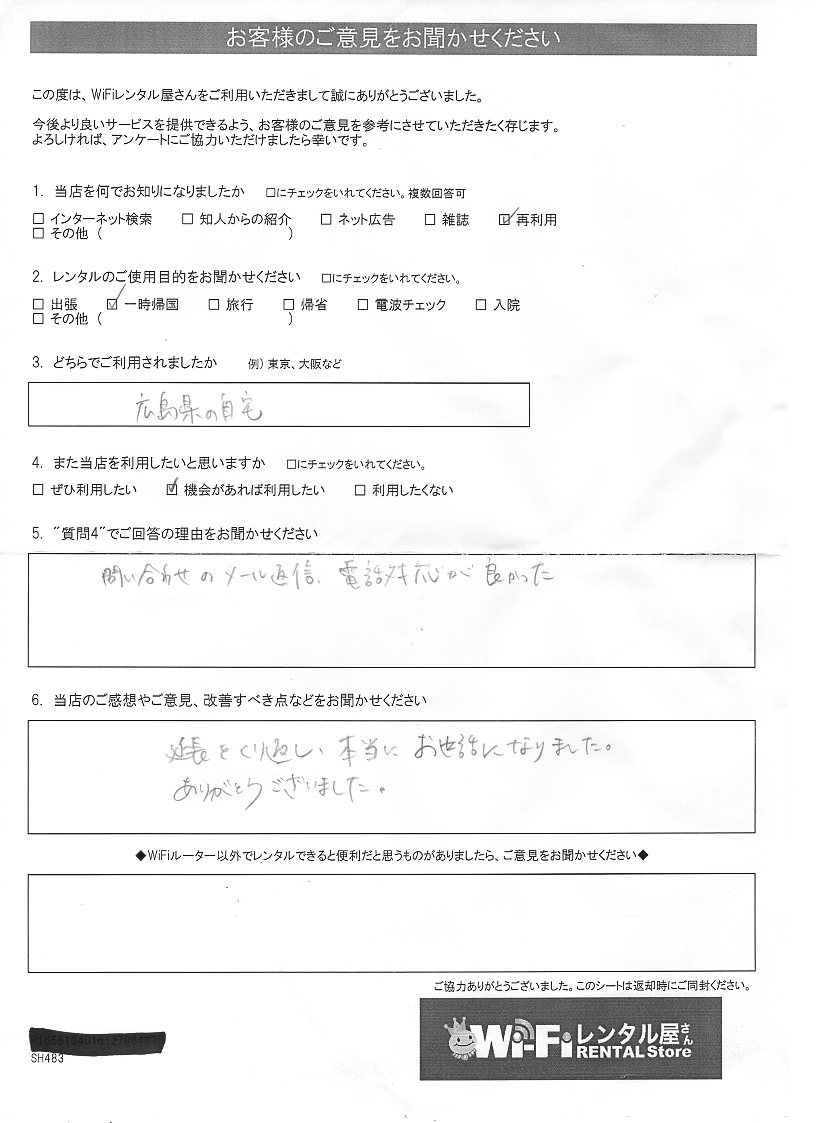 お客様のご意見をお聞かせください
この度は、WiFiレンタル屋さんをご利用いただきまして誠にありがとうございました。
今後より良いサービスを提供できるよう、お客様のご意見を参考にさせていただきたく存じます。
よろしければ、アンケートにご協力いただけましたら幸いです。
1. 当店を何でお知りになりましたか □にチェックをいれてください。複数回答可
□ インターネット検索 □ 知人からの紹介 □ ネット広告 □ 雑誌 ☑ 再利用
□ その他 ( )
2. レンタルのご使用目的をお聞かせください □にチェックをいれてください。
□ 出張 ☑ 一時帰国 □ 旅行 □ 帰省 □ 電波チェック □ 入院
□ その他 ( )
3. どちらでご利用されましたか 例) 東京、大阪など
広島県の自宅
4. また当店を利用したいと思いますか □にチェックをいれてください。
□ ぜひ利用したい ☑ 機会があれば利用したい □ 利用したくない
5. "質問4"でご回答の理由をお聞かせください
問い合わせのメール返信、電話対応が良かった
6. 当店のご感想やご意見、改善すべき点などをお聞かせください
延長をくり返し、本当にお世話になりました。
ありがとうございました。
◆WiFiルーター以外でレンタルできると便利だと思うものがありましたら、ご意見をお聞かせください◆
ご協力ありがとうございました。このシートは返却時にご同封ください。
Wi-Fiレンタル屋さん
RENTAL Store
SH483